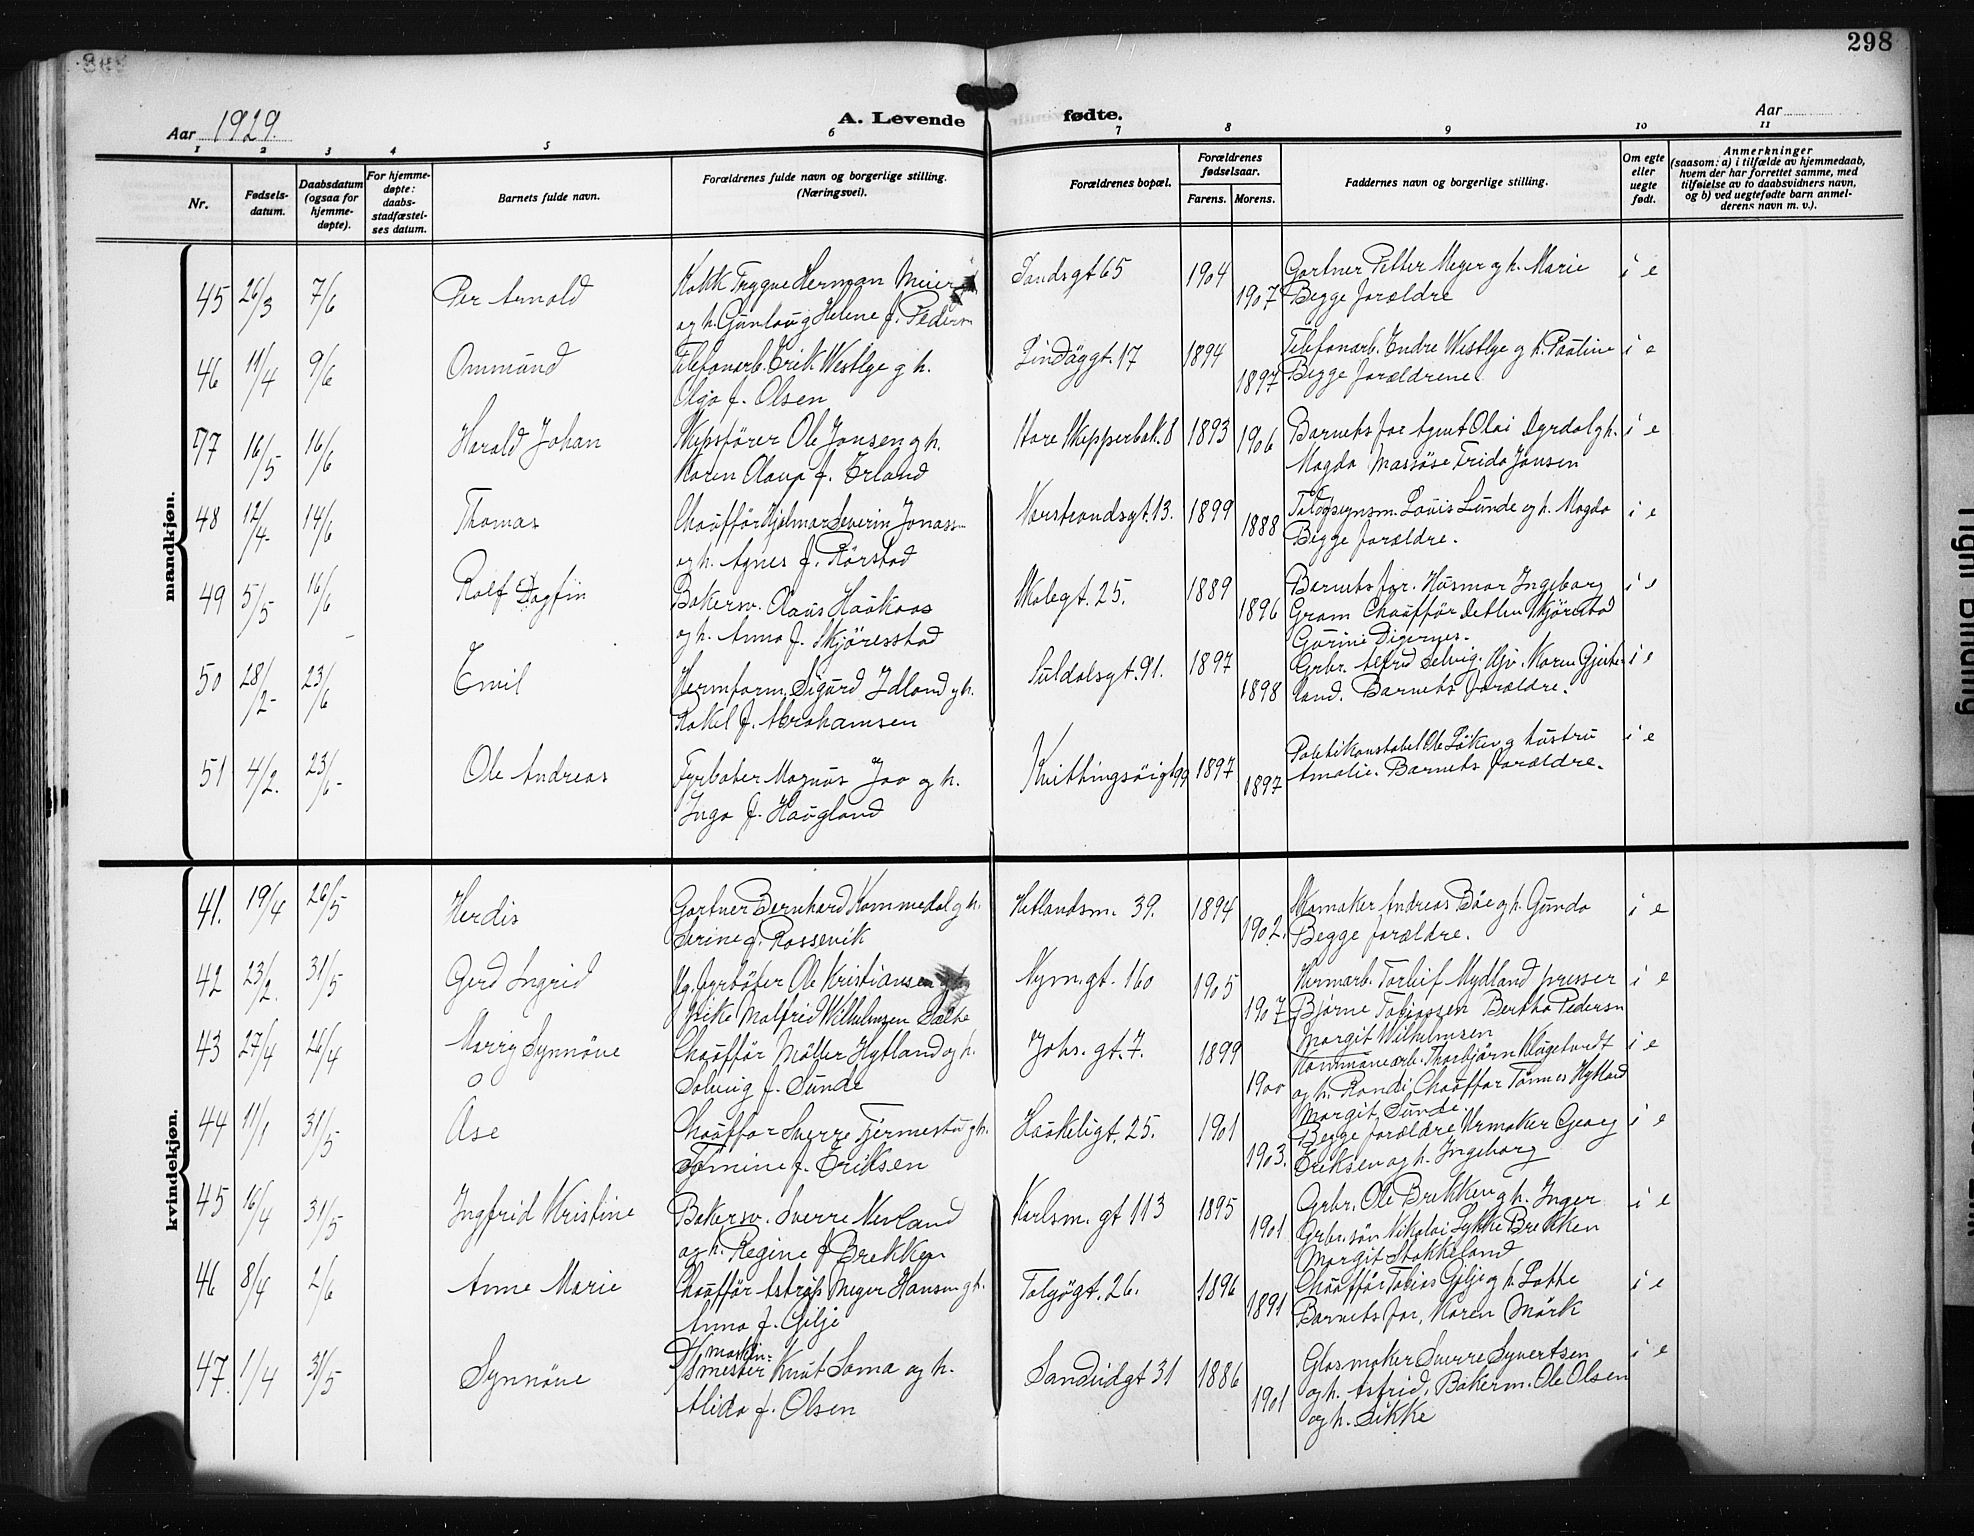 298
Aar 1929.
A. Levende fødte.
Aar
1 2 3 4 5 6 7 8 9 10 11
Nr.
Fødsels-
datum.
Daabsdatum
(ogsaa for
hjemme-
døpte).
For hjemme-
døpte:
daabs-
stadfæstel-
ses datum.
Barnets fulde navn.
Forældrenes fulde navn og borgerlige stilling.
(Næringsvei).
Forældrenes bopæl.
Forældrenes
fødselsaar.
Farens. Morens.
Faddernes navn og borgerlige stilling.
Om egte
eller
uegte
født.
Anmerkninger
(saasom: a) i tilfælde av hjemmedaab,
hvem der har forrettet samme, med
tilføielse av to daabsvidners navn,
og b) ved uegtefødte barn anmel-
derens navn m. v.).
mandkjøn.
45 26/3 7/6 Per Arnold
Kokk Trygve Herman Meier
og h. Gunlaug Helene f. Peders
Sandsgt 65 1904 1907
Gartner Petter Meyer og h. Marie
Begge forældre
i e
46 11/4 9/6 Ommund
Telefonarb. Erik Westlye g h.
Olga f. Olsen
Lindøygt. 17 1894 1897
Telefonarb. Endre Westlye g h. Pauline
Begge forældrene.
i e
47 16/5 16/6 Harald Johan
Skipsfører Ole Jonsen g h.
Karen Olava f. Erland
Store Skipperbak. 8 1893 1906
Barnets far Agent Olai Dyrdal g h.
Magda Massøse Frida Jonsen
i e
48 12/4 14/6 Thomas
Chauffør Hjalmar Severin Jonass
og h. Agnes f. Rørstad
Norstrandsgt. 13. 1899 1888
Louis Lunde og h. Magda
Begge forældre.
i e
49 5/5 16/6 Rolf Dagfin
Bakersv. Claus Haakaas
og h. Anna f. Skjøresstad
Skolegt. 25. 1889 1896
Barnets far. Husmor Ingeborg
Gram Chauffør Detlev Skjørestad
Gurine Digernes.
i e
50 28/2 23/6 Emil
Hermform. Sigurd Idland g h.
Rakel f. Abrahamsen
Suldalsgt. 91. 1897 1898
Grbr. Alfred Selvig. Karen Gjerte-
land. Barnets forældre.
i e
51 4/2. 23/6 Ole Andreas
Fyrbøter Magnus Joo og h.
Inga f. Haugland
Kvitingsøigt 99 1897 1897
Politikonstabel Ole Løken g hustru
Amalie. Barnets forældre.
i e
kvindekjøn.
41. 19/4 26/5 Herdis
Gartner Bernhard Kommedal g h.
Serine f. Rossevik
Hetlandsm. 39. 1894 1902.
Skomaker Andreas Bøe g h. Gunda
Begge forældre.
i e
42 23/2. 31/5 Gerd Ingrid
fyrbøter Ole Kristiansen
Malfrid Wilhelmsen Sælhe
Nym. gt. 160 1905 1907
Hermarb. Torleif Mydland presser
Bjarne Tobiassen Bertha Pedersn
Margit Wilhelmsen
i e
43 27/4 26/4 Marry Synnøve
Chauffør Møller Hytland og h.
Solveig f. Sunde
Johs. gt. 7. 1899 1900
Kommunearb. Thorbjørn Klugetvedt
og h. Randi Chauffør Tønnes Hytland
Margit Sunde.
i e
44 11/1 31/5 Åse
Chauffør Sverre Fjermestad g h.
Tomine f. Eriksen
Haukeligt. 25. 1901 1903.
Begge forældre Urmaker Georg
Eriksen og h. Ingeborg
i e
45 16/4 31/5 Ingfrid Kristine
Bakersv. Sverre Nevland
og h. Regine f Brekken
Karlsm. gt 113 1895 1901
Grbr. Ole Brekken g h. Inger
Grbr. søn Nikolai Lykke Brekken
Margit Stokkeland
i e
46 8/4 2/6 Anne Marie
Chauffør Astrup Meyer Hansen g h.
Anna f. Gilje
Talgøgt. 26. 1896 1891
Chauffør Tobias Gilje g h. Lotte
Barnets far, Karen Mørk
i e
47. 1/4 31/5 Synnøve
maskin-
mester Knut Soma og h.
Alida f. Olsen
Sandvidgt 31 1886 1901
Glasmaker Sverre Syvertsen
og h. Astrid, Bakerm. Ole Olsen
og h. Sikke
i e